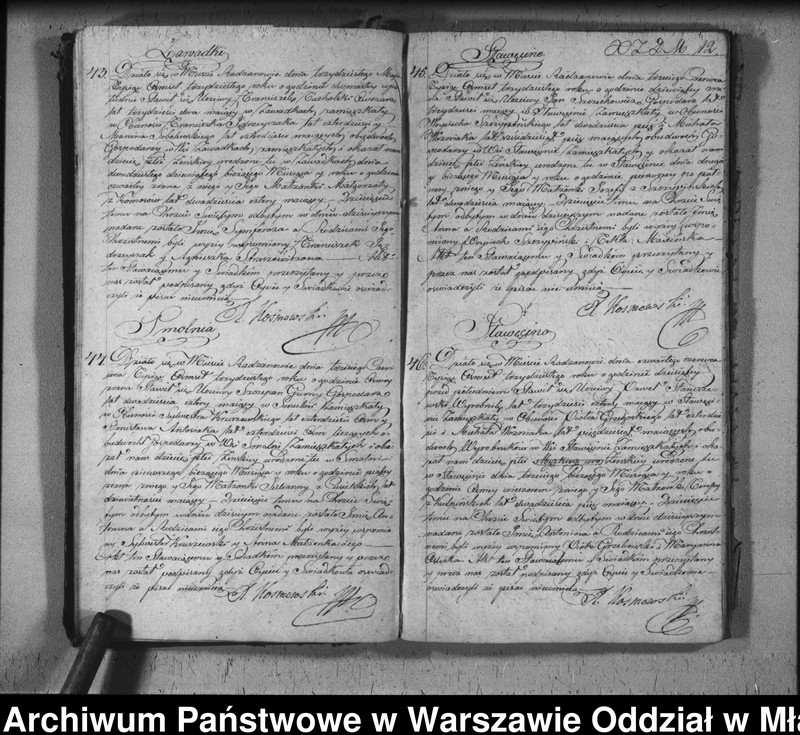 Zawadki
43. Działo się w Mieście Radzanowie dnia trzydziestego Maja
Tysiąc Ośmset trzydziestego roku o godzinie
Stawił się Uczciwy Franciszek
lat trzydzieści dwa mający w Zawadkach zamieszkały
w Obecności Franciszka Jędrzejczaka lat czterdzieści y
Marcina lat czterdzieści mających obydwóch
Gospodarzy w Wsi Zawadkach zamieszkałych i okazał nam
dziecię płci Żeńskiej urodzone tu w Zawadkach dnia
dwudziestego dziewiątego bieżącego Miesiąca y roku o godzinie
czwartej zrana z niego y Jego Małżonki Małgorzaty
z Komorow lat dwadzieścia cztery mającej — Dziecięciu
temu na Chrzcie Świętym odbytym w dniu dzisiejszym
nadane zostało Imię Symforoza a Rodzicami Jego
Chrzestnemi byli wyżej wspomniony Franciszek Ję-
drzejczak y Agnieszka — Akt
ten Stawaiącemu y Świadkom przeczytany y przez
nas został podpisany gdyż Oyciec y Świadkowie oświad-
czyli iż pisać nieumieią
A. Kosmowski
Smolnia
44. Działo się w Mieście Radzanowie dnia trzeciego Czer-
wca Tysiąc Ośmset trzydziestego roku o godzinie ósmey
zrana Stawił się Uczciwy Szczepan Gurny Gospodarz
lat dwadzieścia cztery mający w Smolni Zamieszkały
w Obecności Sylwestra Kruszewskiego lat czterdzieści
lat czterdzieści ośm liczących
obydwóch Gospodarzy w Wsi Smolni Zamieszkałych i oka-
zał nam dziecię płci Żeńskiej urodzone tu w Smolni
dnia pierwszego bieżącego Miesiąca y roku o godzinie
zrana z niego y Jego Małżonki Julianny z
lat mającej — Dziecięciu temu na Chrzcie Świę-
tym odbytym w dniu dzisiejszym nadane zostało Imię An-
tonina a Rodzicami iego Chrzestnemi byli wyżej wspomnio-
ny Sylwester Kruszewski y Anna Małżonka iego
Akt ten Stawaiącemu y Świadkom przeczytany y przez
nas został podpisany gdyż Oyciec y Świadkowie oświad-
czyli iż pisać nieumieią
A. Kosmowski
12
Sławęcino
45. Działo się w Mieście Radzanowie dnia trzeciego Czerwca
Tysiąc Ośmset trzydziestego roku o godzinie dziewiątey zra-
na Stawił się Uczciwy Jan Gospodarz lat
trzydzieści mający w Sławęcinie Zamieszkały w Obecności
Woyciecha lat dwadzieścia pięć y Michała
Woźniaka lat pięć mających obydwóch Go-
spodarzy w Wsi Sławęcinie Zamieszkałych y okazał nam
dziecię płci Żeńskiej urodzone tu w Sławęcinie dnia drugie-
go bieżącego Miesiąca y roku o godzinie pierwszey po połu-
dniu z niego y Jego Małżonki Józefy z
lat dwadzieścia mającej — Dziecięciu temu na Chrzcie Świę-
tym odbytym w dniu dzisiejszym nadane zostało Imię
Anna a Rodzicami iego Chrzestnemi byli wyżej wspo-
mniony Woyciech y
Akt ten Stawaiącemu y Świadkom przeczytany y
przez nas został podpisany gdyż Oyciec y Świadkowie
oświadczyli iż pisać nie umieią
A. Kosmowski
Sławęcino
46. Działo się w Mieście Radzanowie dnia czwartego czerwca
Tysiąc Ośmset trzydziestego roku o godzinie dziesiątey
przed południem Stawił się Uczciwy Paweł
Wyrobnik lat trzydzieści cztery mający w Sławęci-
nie Zamieszkały w Obecności Piotra lat czterdzie-
ści i Michała Woźniaka lat pięćdziesiąt mających oby-
dwóch Wyrobników w Wsi Sławęcinie Zamieszkałych i oka-
zał nam dziecię płci Żeńskiej urodzone tu
w Sławęcinie dnia trzeciego bieżącego Miesiąca y roku o
godzinie ósmey wieczorem z niego y Jego Małżonki
lat dwadzieścia pięć mającej — Dziecięciu
temu na Chrzcie Świętym odbytym w dniu dzisiejszym
nadane zostało Imię Antonina a Rodzicami iego Chrzest-
nemi byli wyżej wspomniony Piotr y Maryanna
Akt ten Stawaiącemu y Świadkom przeczytany
y przez nas został podpisany gdyż Oyciec y Świadkowie
oświadczyli iż pisać nieumieią
A. Kosmowski
Archiwum Państwowe w Warszawie Oddział w Mła